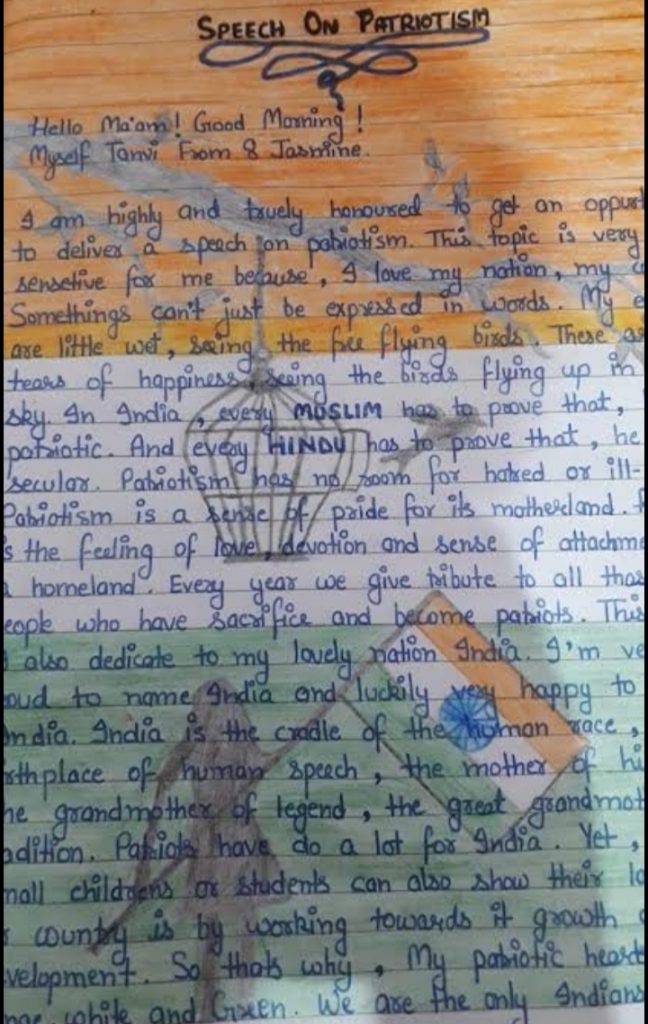 SPEECH ON PATRIOTISM
Hello Ma'am! Good Morning!
Myself Tanvi From 8 Jasmine.
I am highly and truely honoured to get an oppurt
to deliver a speech on patriotism. This topic is very
sensetive for me because, I love my nation, my c
Somethings can't just be expressed in words. My e
are little wet, seeing the free flying birds. These a
tears of happiness seeing the birds flying up in
sky. In India, every MUSLIM has to prove that,
patriotic. And every HINDU has to prove that, he
secular. Patriotism has no room for hatred or ill-
Patriotism is a sense of pride for its motherland.
s the feeling of love, devotion and sense of attachme
homeland. Every year we give tribute to all thos
eople who have sacrifice and become patriots. This
also dedicate to my lovely nation India. I'm ve
oud to name India and luckily very happy to
India. India is the cradle of the human race,
rthplace of human speech, the mother of hi
he grandmother of legend, the great grandmot
adition. Patriots have do a lot for India. Yet,
mall childrens or students can also show their lo
country is by working towards it growth
velopment. So thats why, My patriotic heart
nge, white and Green. We are the only Indians